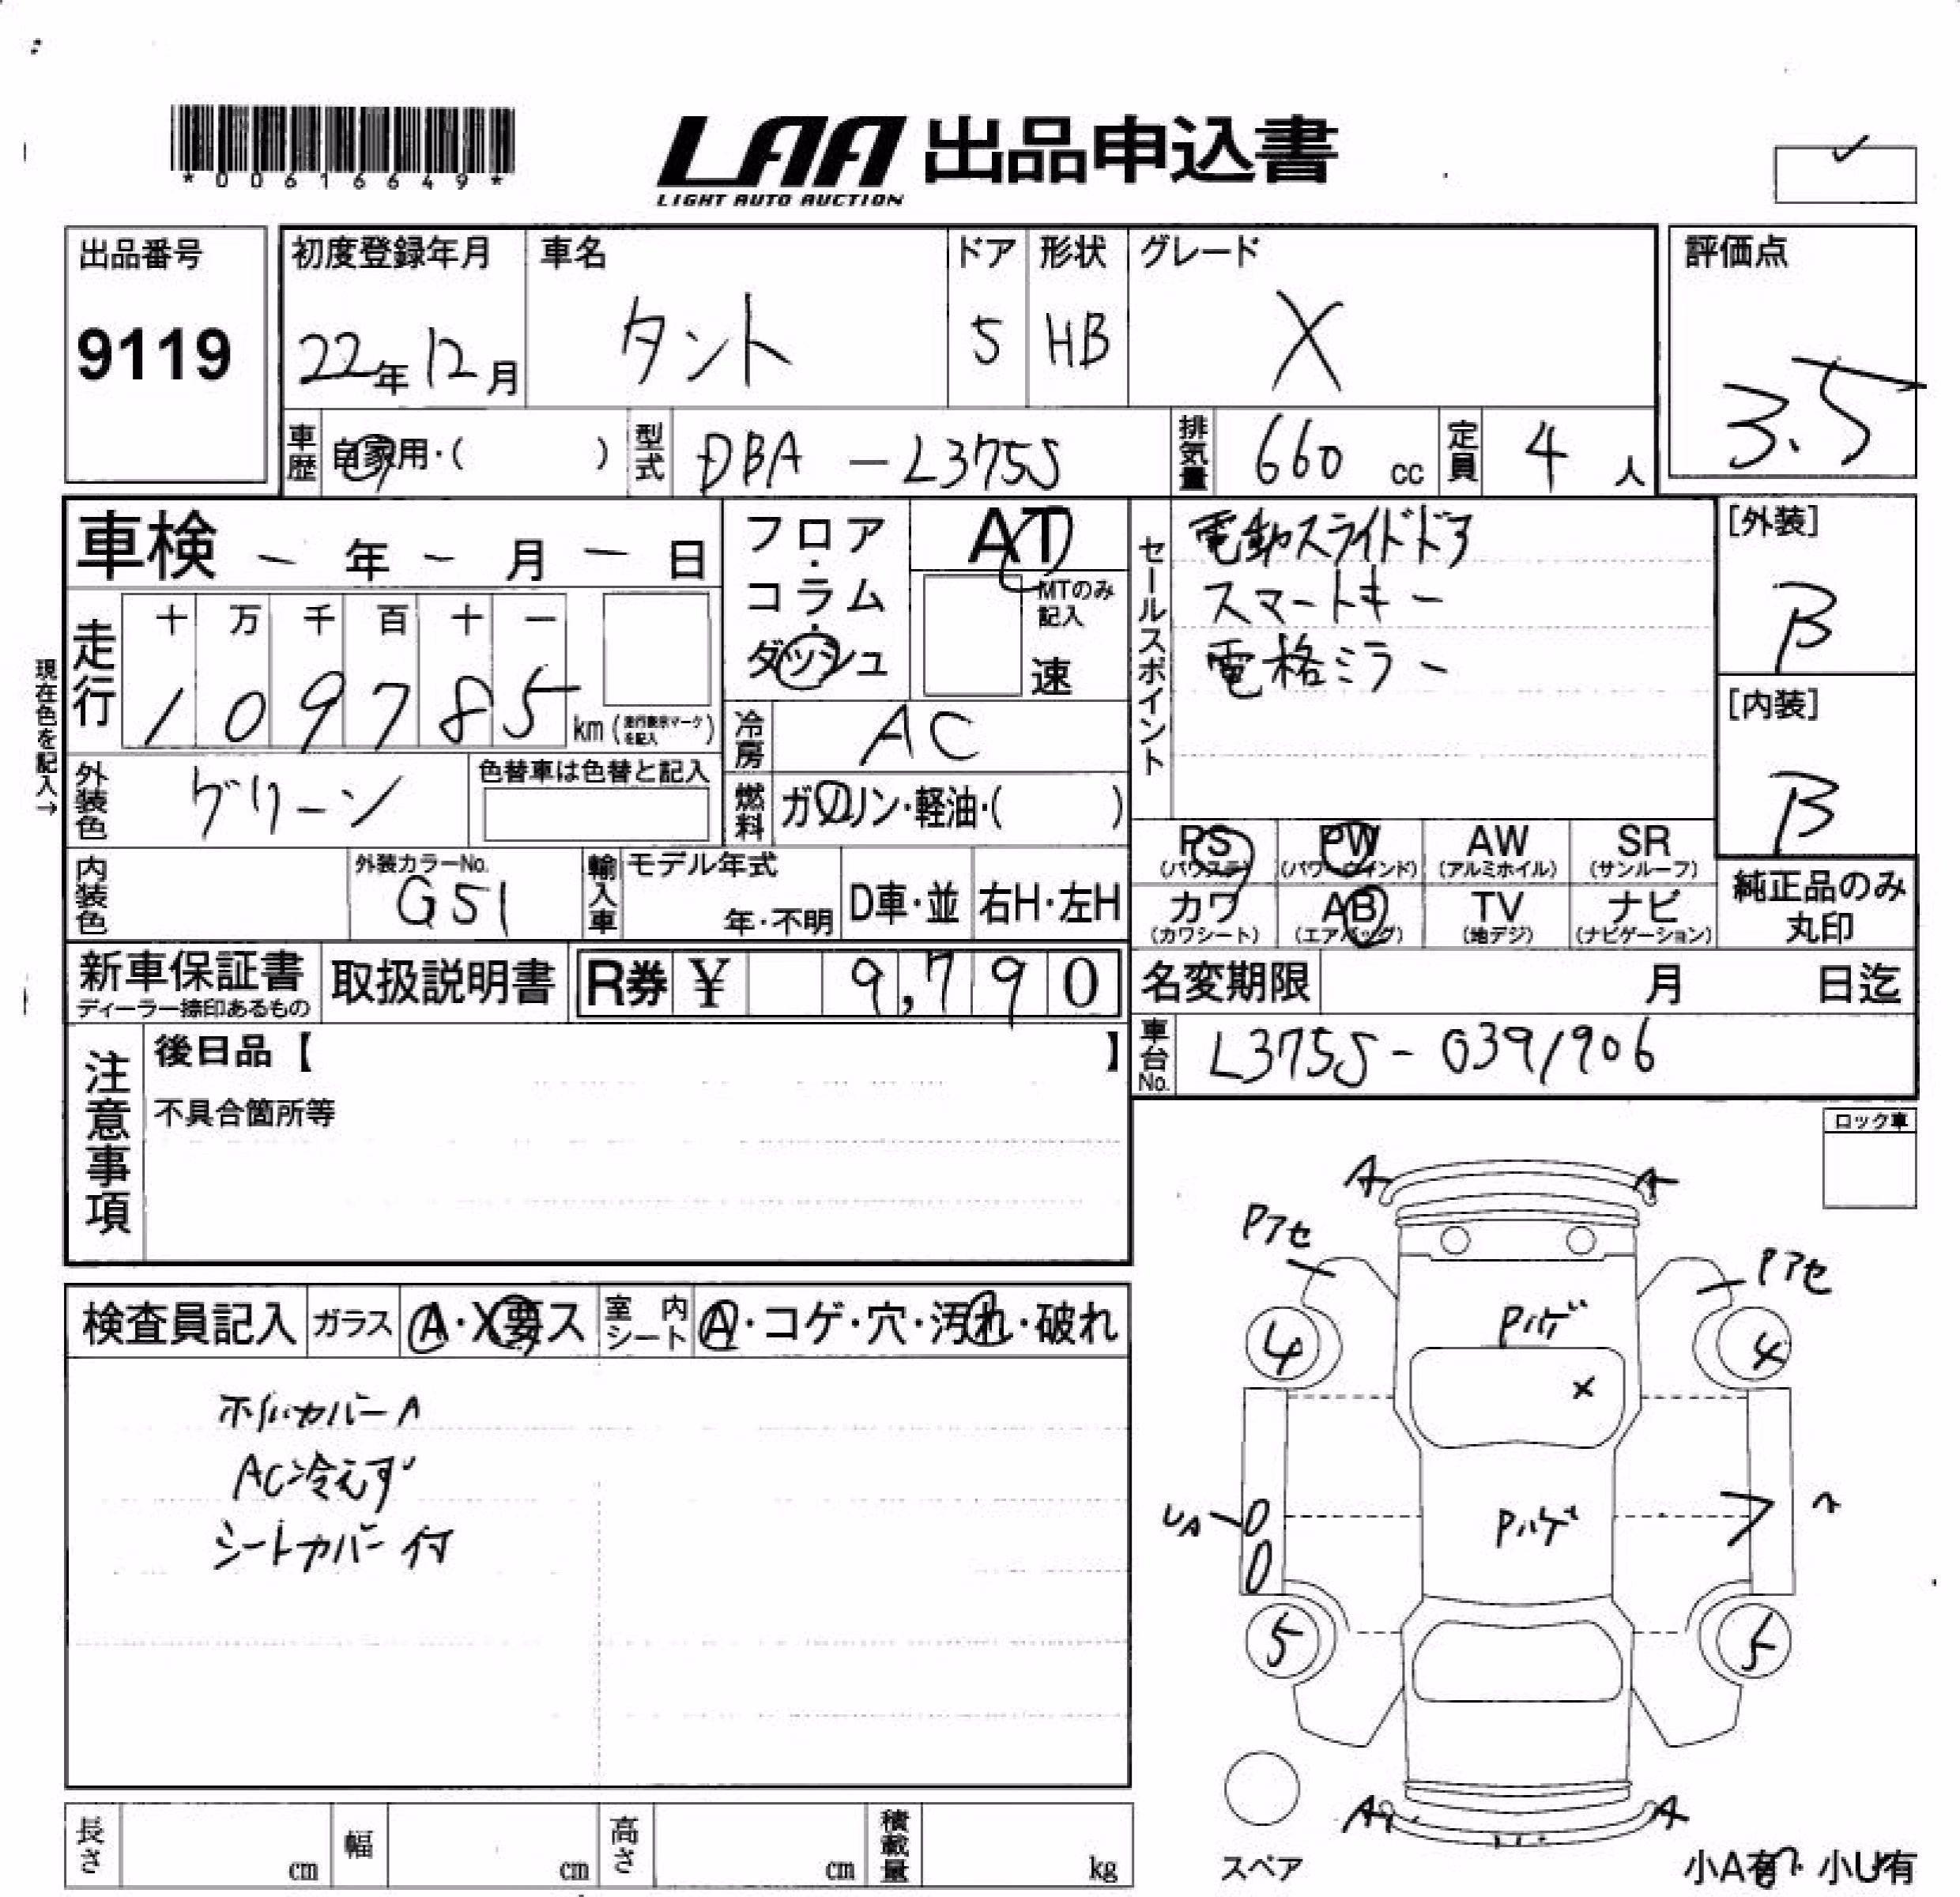 *00616649*
LAA 出品申込書
LIGHT AUTO AUCTION
出品番号
9119
初度登録年月
22年12月
車名
タント
ドア
5
形状
HB
グレード
X
評価点
3.5
車歴
自家用・( )
型式
DBA-L375S
排気量
660 cc
定員
4人
車検 - 年 - 月 - 日
フロア・コラム・ダッシュ
AT
MTのみ記入
速
セールスポイント
電動スライドドア
スマートキー
電格ミラー
[外装]
B
[内装]
B
現在色を記入→
走行
十 万 千 百 十 一
1 0 9 7 8 5
km (走行表示マークを記入)
冷房
AC
外装色
グリーン
色替車は色替と記入
燃料
ガソリン・軽油・( )
PS
(パワステ)
PW
(パワーウインド)
AW
(アルミホイル)
SR
(サンルーフ)
カワ
(カワシート)
AB
(エアバッグ)
TV
(地デジ)
ナビ
(ナビゲーション)
純正品のみ
丸印
内装色
外装カラーNo.
G51
輸入車
モデル年式
年・不明
D車・並
右H・左H
新車保証書
ディーラー捺印あるもの
取扱説明書
R券 ¥ 9,790
名変期限 月 日迄
車台No.
L375S-0391906
注意事項
後日品【 】
不具合箇所等
ロック車
検査員記入
ガラス
A・X要ス
室内シート
A・コゲ・穴・汚れ・破れ
ホイルカバーA
AC冷えず
シートカバー付
A A
Pアセ
Pアセ
Pハゲ
4 4
X
Pハゲ
UA
5 5
A A
スペア
小A有・小U有
長さ cm
幅 cm
高さ cm
積載量 kg